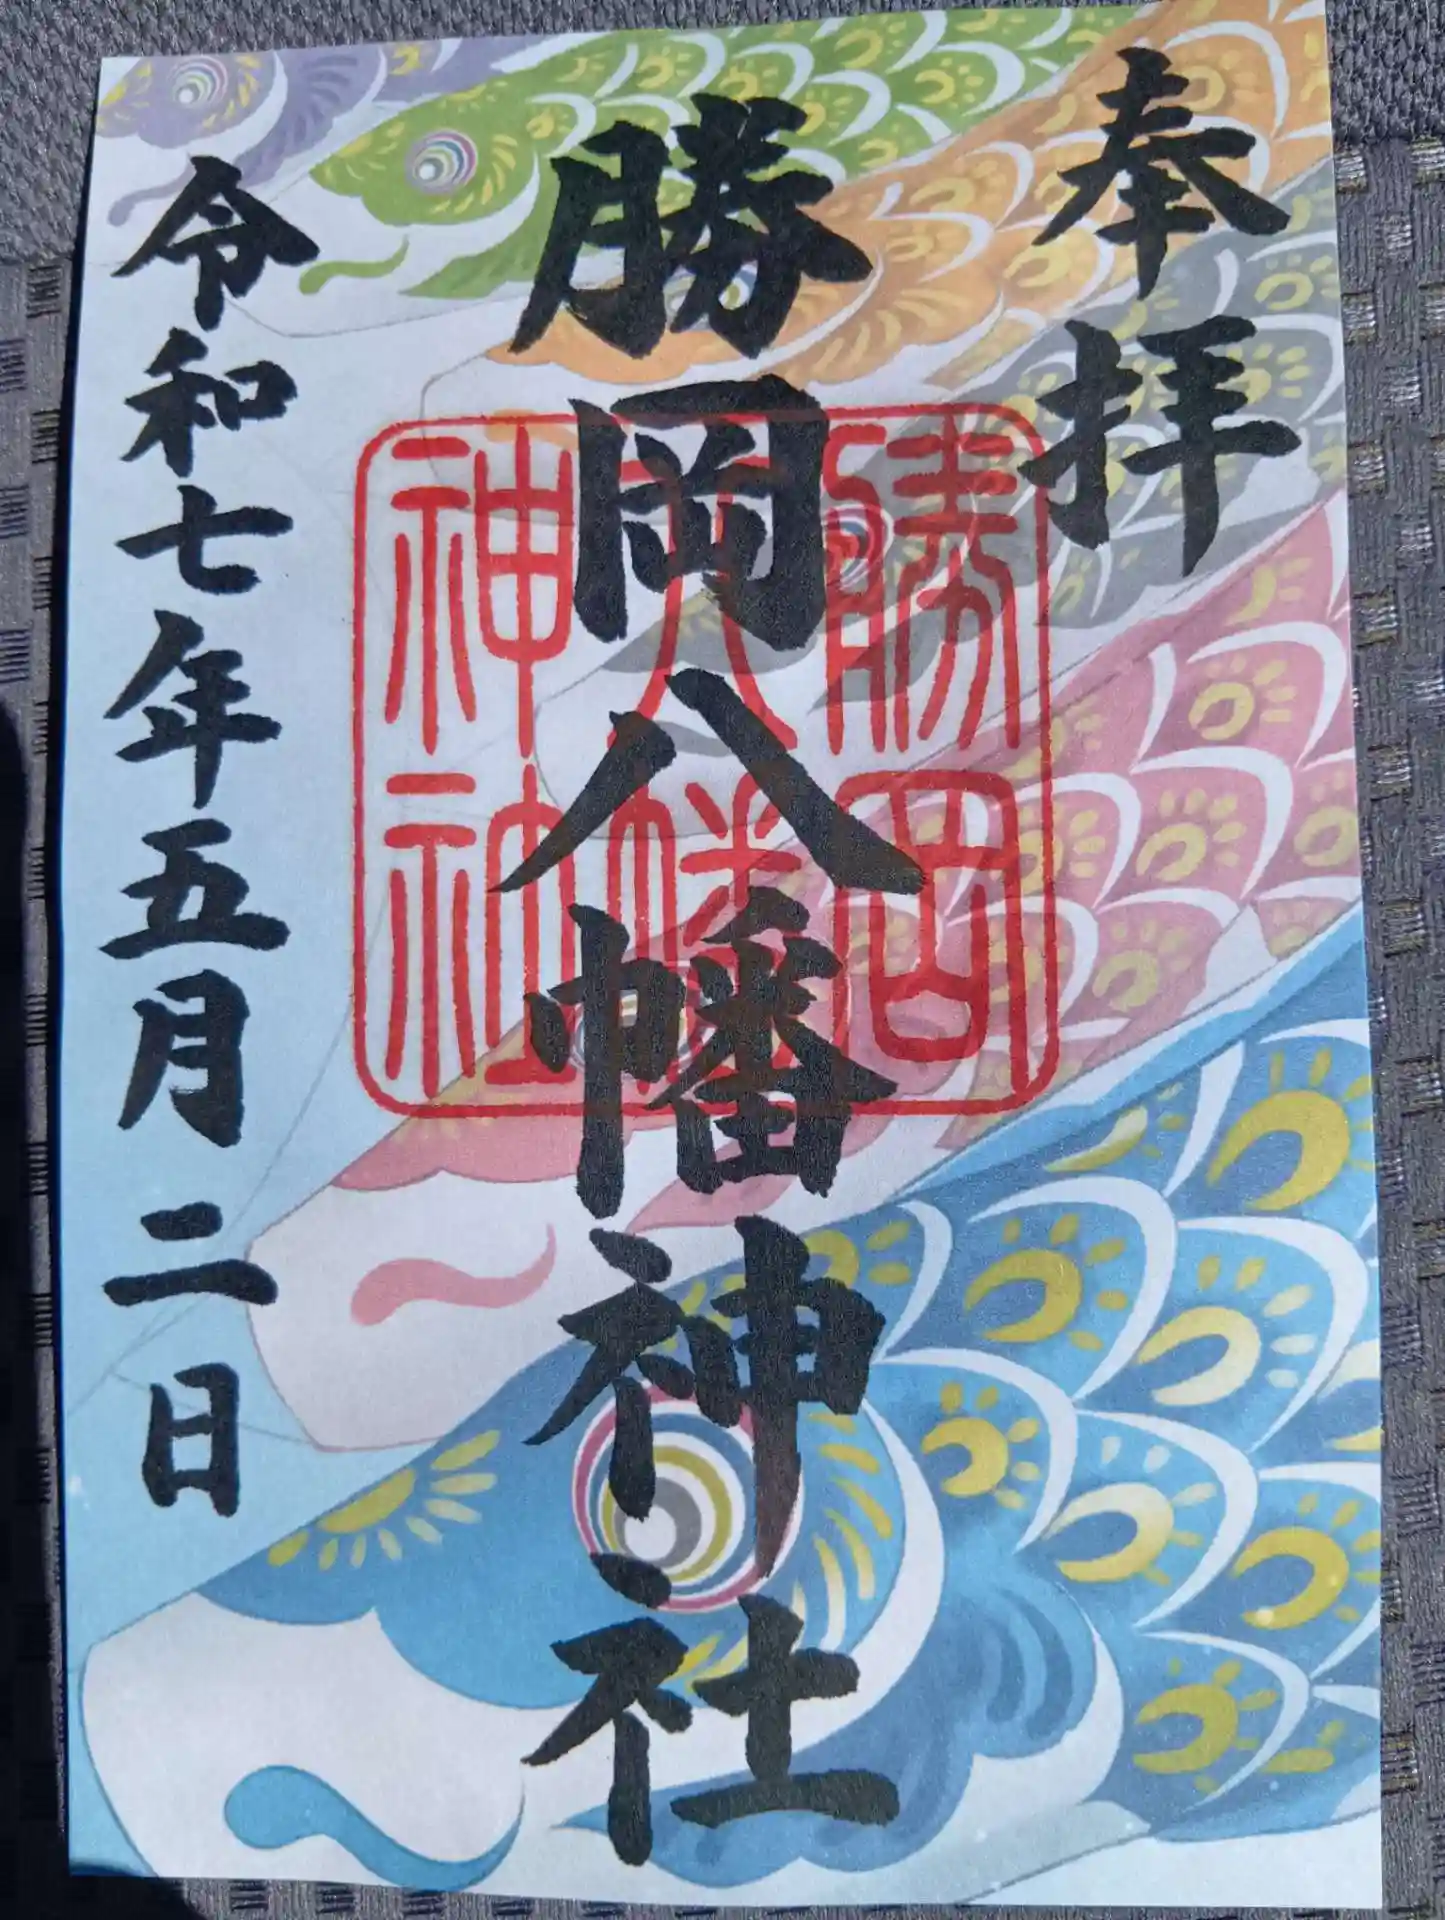 奉拝
勝岡八幡神社
勝岡
八幡
神社
令和七年五月二日